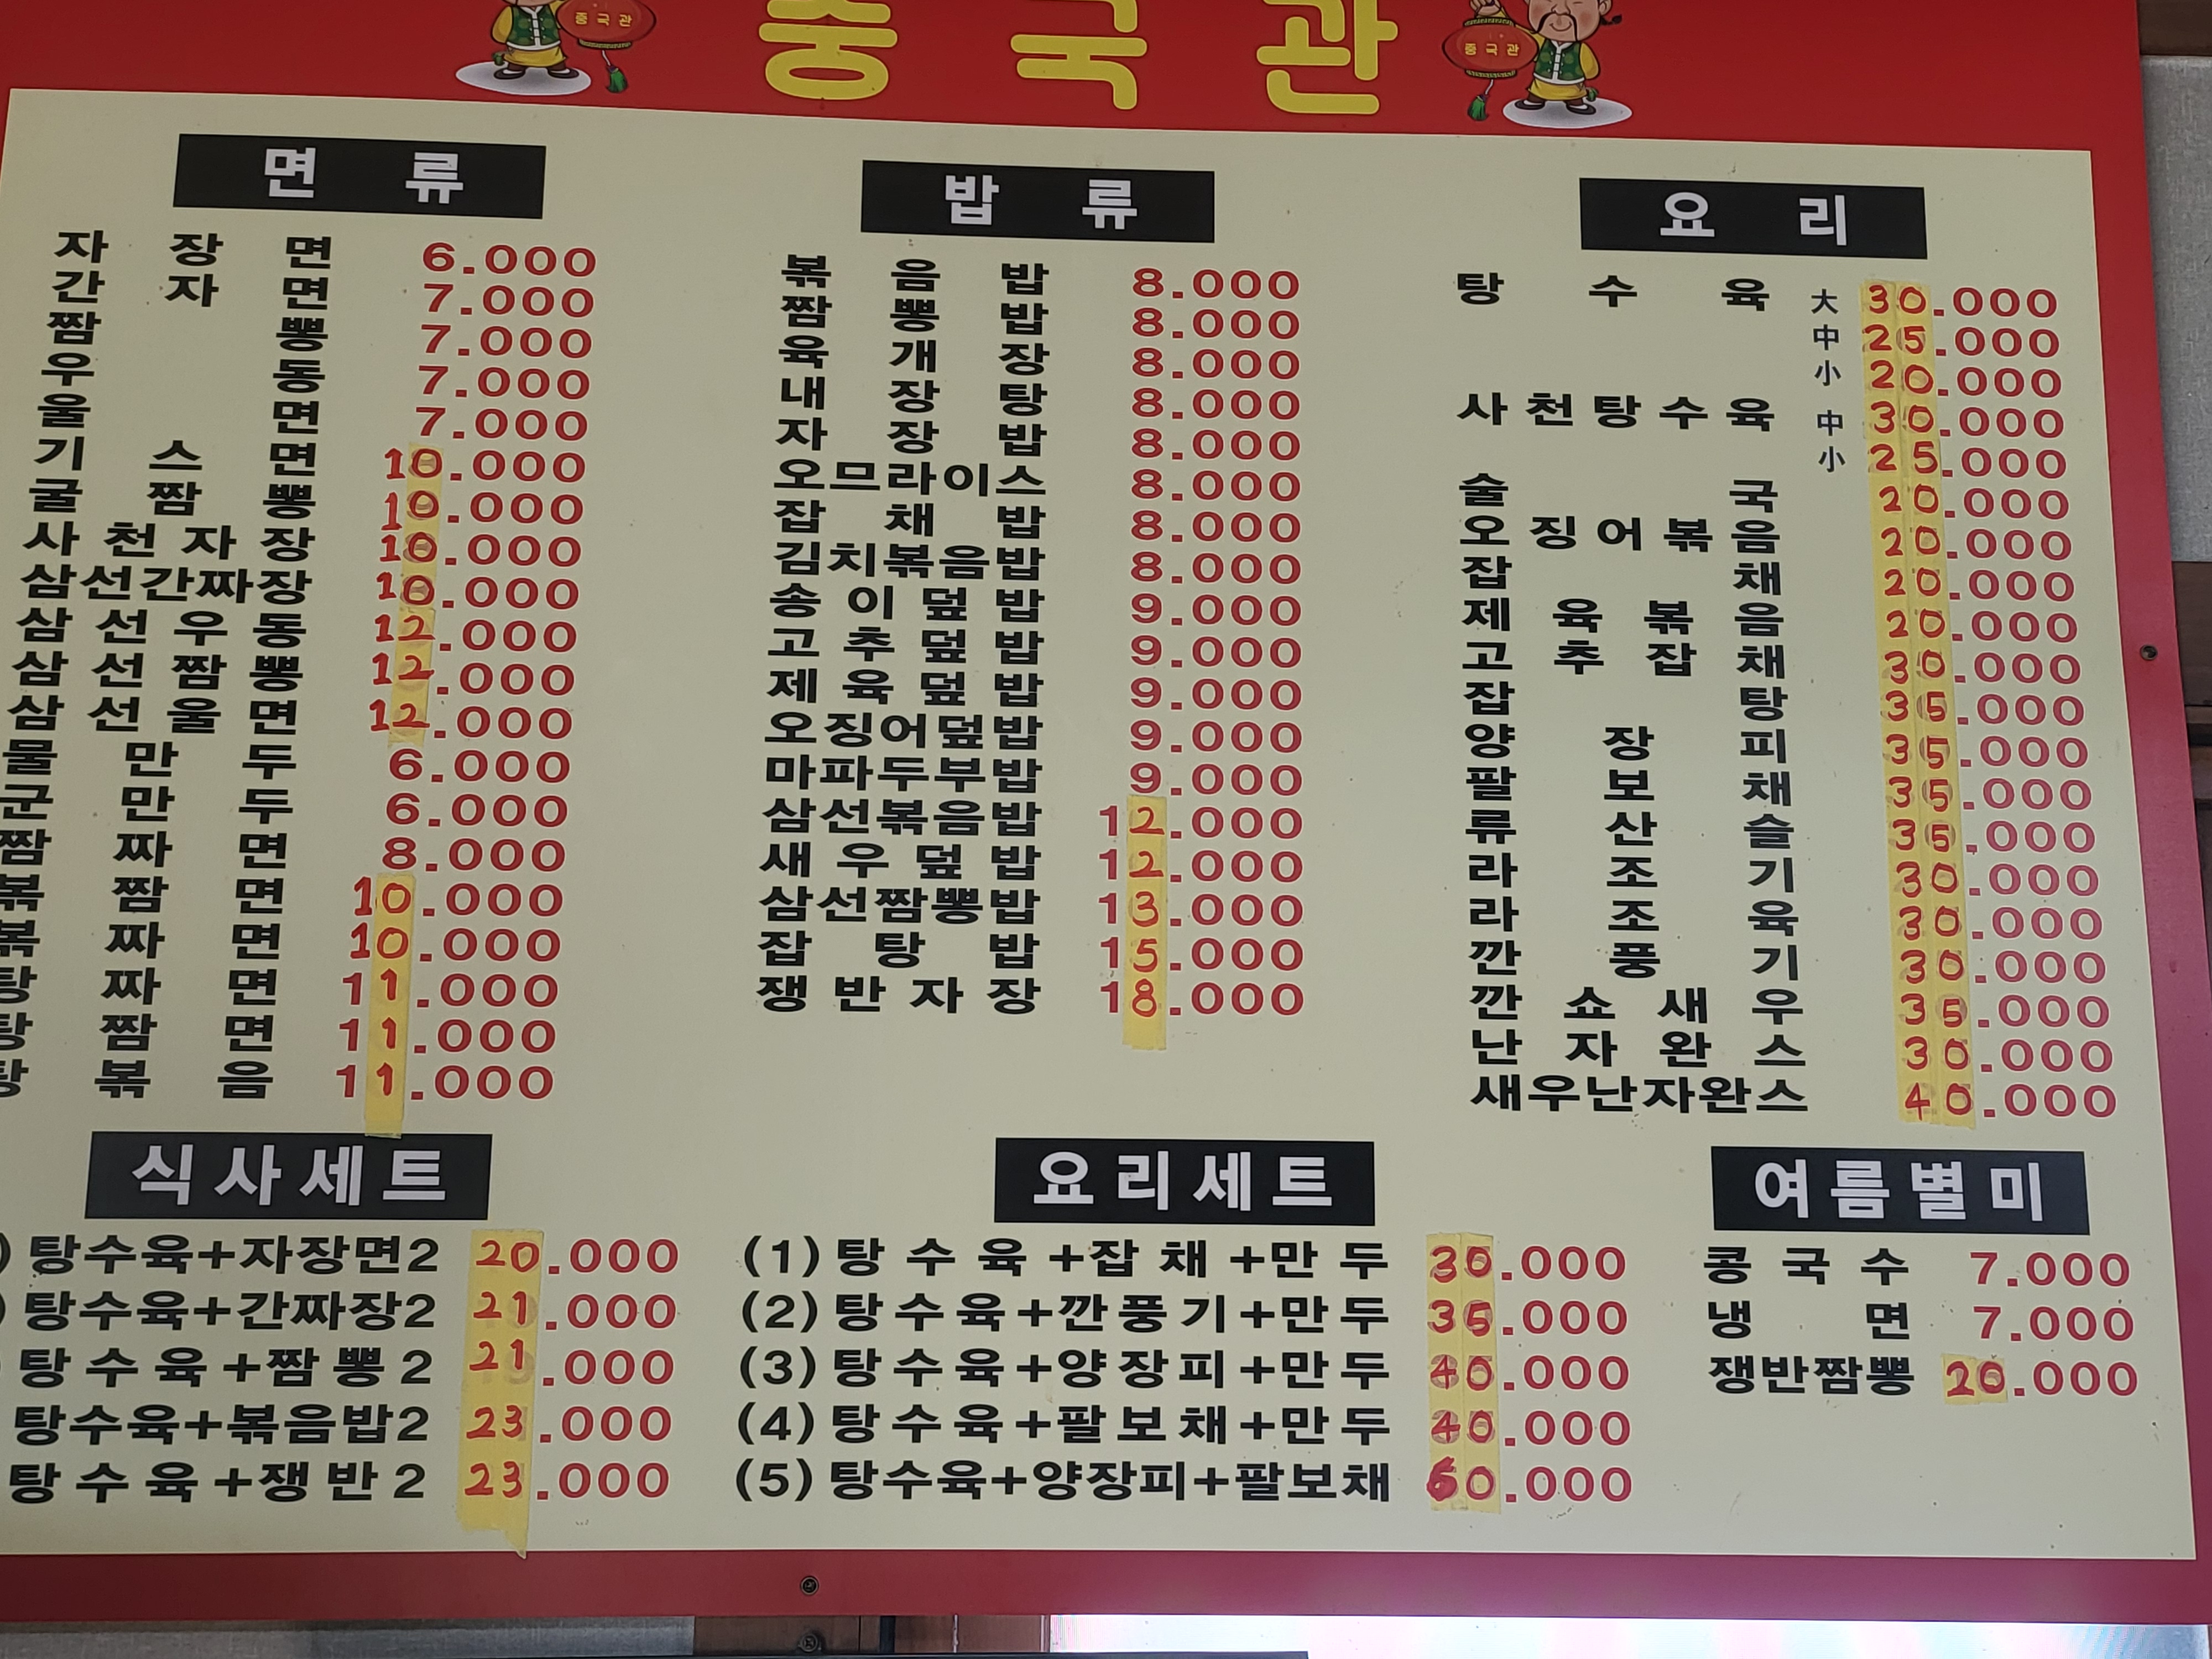 중국관
중국관
중국관
면류
자장면 6.000
간자면 7.000
짬뽕 7.000
우동 7.000
울면 7.000
기스면 10.000
굴짬뽕 10.000
사천자장 10.000
삼선간짜장 10.000
삼선우동 12.000
삼선짬뽕 12.000
삼선울면 12.000
물만두 6.000
군만두 6.000
짬짜면 8.000
볶짬면 10.000
볶짜면 10.000
탕짜면 11.000
탕짬면 11.000
탕볶음 11.000
밥류
볶음밥 8.000
짬뽕밥 8.000
육개장 8.000
내장탕 8.000
자장밥 8.000
오므라이스 8.000
잡채밥 8.000
김치볶음밥 8.000
송이덮밥 9.000
고추덮밥 9.000
제육덮밥 9.000
오징어덮밥 9.000
마파두부밥 9.000
삼선볶음밥 12.000
새우덮밥 12.000
삼선짬뽕밥 13.000
잡탕밥 15.000
쟁반자장 18.000
요리
탕수육 大 30.000
中 25.000
小 20.000
사천탕수육 中 30.000
小 25.000
술국 20.000
오징어볶음 20.000
잡채 20.000
제육볶음 20.000
고추잡채 30.000
잡탕 35.000
양장피 35.000
팔보채 35.000
류산슬 35.000
라조기 30.000
라조육 30.000
깐풍기 30.000
깐쇼새우 35.000
난자완스 30.000
새우난자완스 40.000
식사세트
) 탕수육+자장면2 20.000
) 탕수육+간짜장2 21.000
탕수육+짬뽕2 21.000
탕수육+볶음밥2 23.000
탕수육+쟁반2 23.000
요리세트
(1) 탕수육+잡채+만두 30.000
(2) 탕수육+깐풍기+만두 35.000
(3) 탕수육+양장피+만두 40.000
(4) 탕수육+팔보채+만두 40.000
(5) 탕수육+양장피+팔보채 60.000
여름별미
콩국수 7.000
냉면 7.000
쟁반짬뽕 20.000